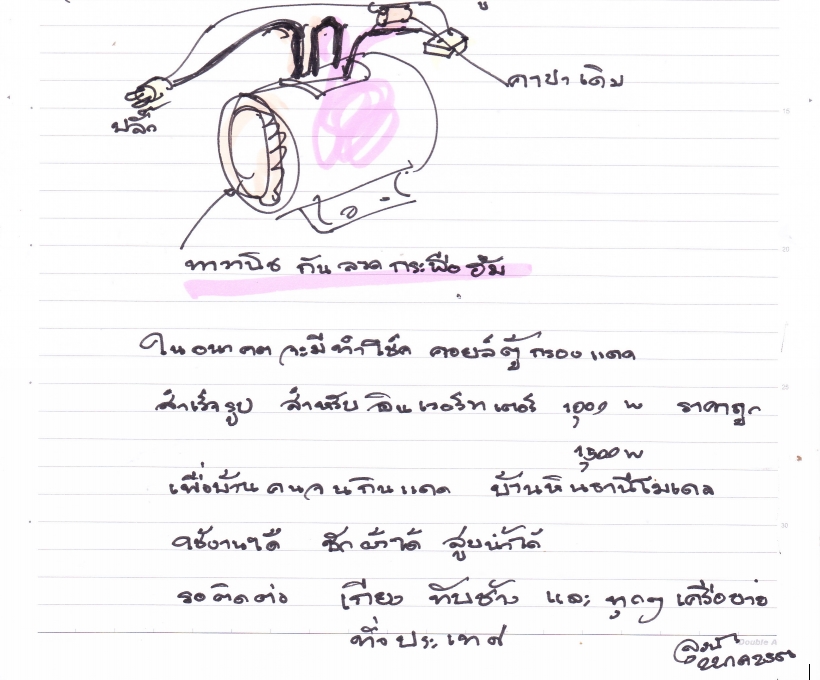 คาปา เดิม
ปลั๊ก
ทาวานิช กัน ลวด กระพือ ฮัม
ในอนาคต จะมีทำโช๊ค คอยล์ตู้ กรองแดด
สำเร็จรูป สำหรับ อินเวอร์ทเตอร์ 1,000 w ราคาถูก
1,500 w
เพื่อบ้านคนจนกินแดด บ้านหินธานีโมเดล
ใช้งานได้ ซักผ้าได้ สูบน้ำได้
รอติดต่อ เกียง ทับช้าง และ ทุกๆ เครือข่าย
ทั่วประเทศ
Double A